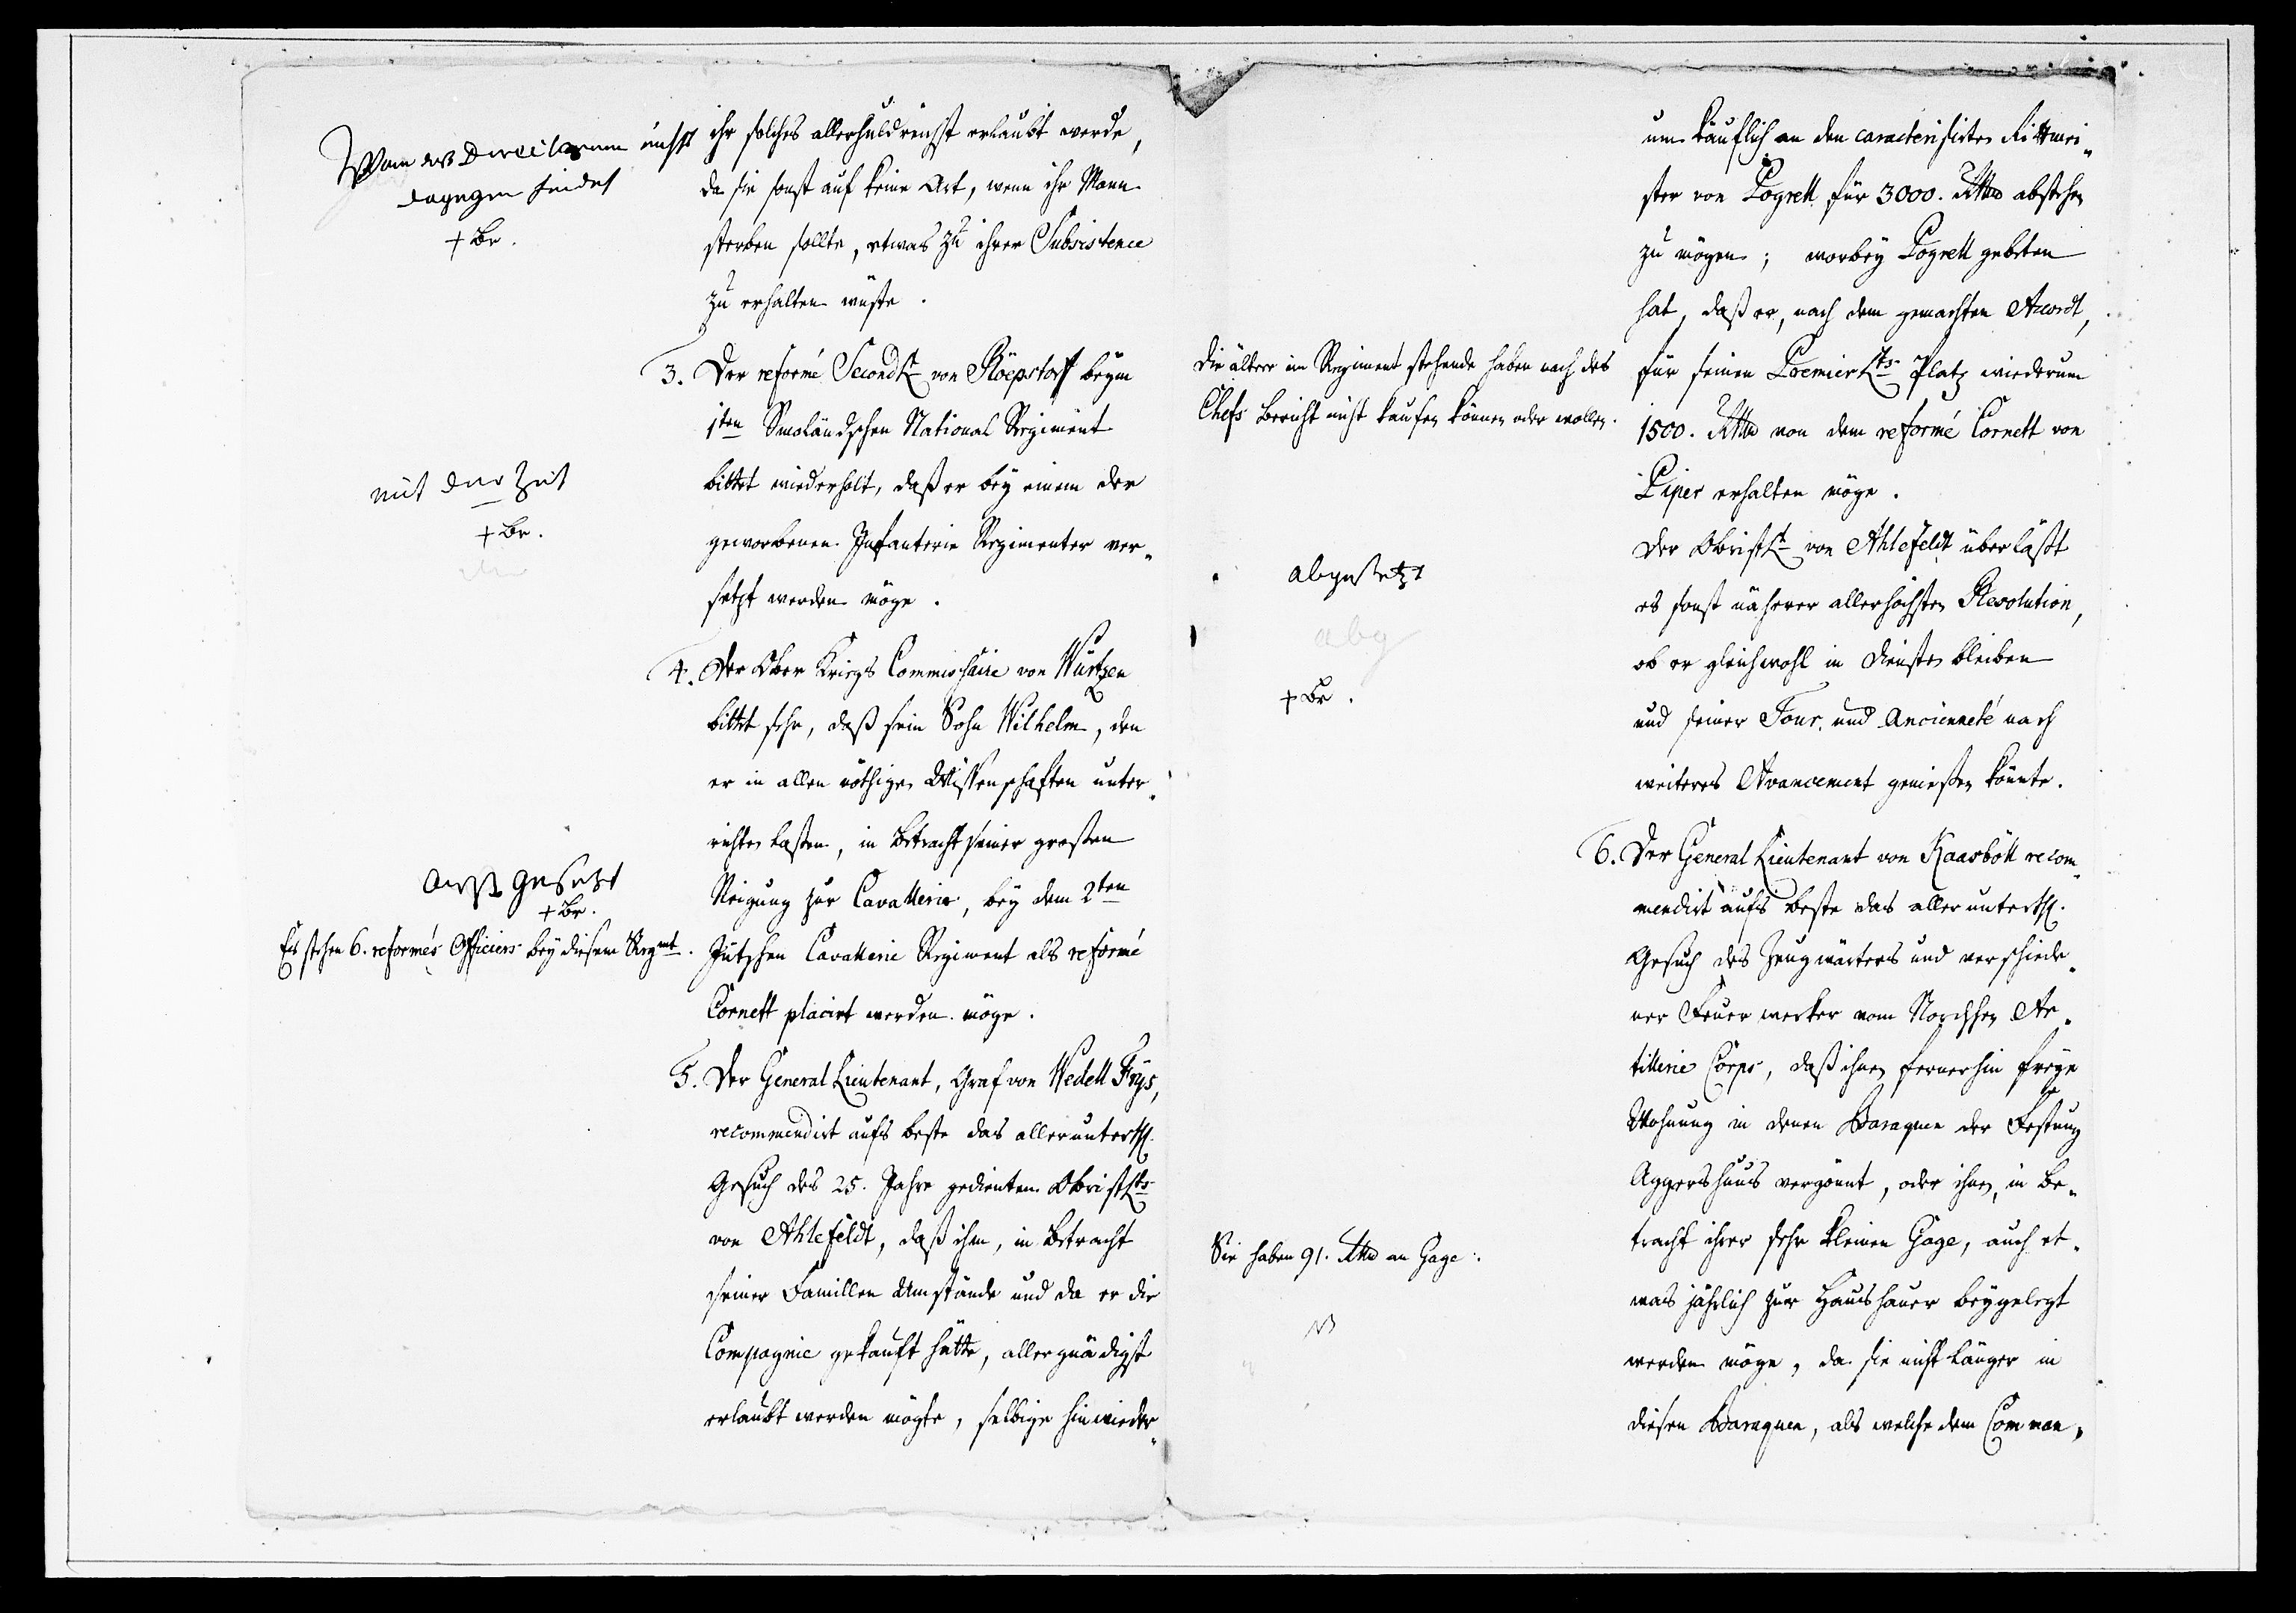 Wan das Directorium nichts
dagegen findet
+ Br.
ihr solches allerhuldreichst erlaubt werde,
da sie sonst auf keine Art, wenn ihr Mann
sterben sollte, etwas zu ihrer Subsistence
zu erhalten wüste.
3. Der reformé SecondLt von Röepstorff beym
1ten Smoländschen National Regiment
bittet wiederholt, daß er bey einem der
geworbenen Infanterie Regimenter ver„
setzt werden möge.
mit der Zeit
+ Br.
4. Der Ober Kriegs Commissaire von Würtzen
bittet sehr, daß sein Sohn Wilhelm, den
er in allen nöthigen Wissenschaften unter„
richten lassen, in Betracht seiner grossen
Neigung zur Cavallerie, bey dem 2ten
Jütschen Cavallerie Regiment als reformé
Cornett placirt werden möge.
auß gesetzt
+ Br.
Es stehen 6. reformés Officiers bey diesem Regmt.
5. Der General Lieutenant, Graf von Wedell Frys,
recommendirt aufs beste das allerunterth.
Gesuch des 25. Jahre gedienten ObristLts
von Ahlefeldt, daß ihm, in Betracht
seiner Famillen Umstände und da er die
Compagnie gekauft hätte, allergnädigst
erlaubt werden mögte, selbige hinwieder„
um käuflich an den caracterisirten Rittmei„
ster von Logrell für 3000. Rthlr abstehen
zu mögen; worbey Logrell gebeten
hat, daß er, nach dem gemachten Accordt,
für seinen PremierLts Platz wiederum
1500. Rthlr von dem reformé Cornett von
Piper erhalten möge.
Die ältere im Regiment stehende haben nach des
Chefs Bericht nicht kaufen können oder wollen.
Der ObristLt von Ahlefeldt überläßt
es sonst näherer allerhöchsten Resolution,
ob er gleichwohl in Diensten bleiben
und seiner Tour und Ancienneté nach
weiteres Avancement geniessen könnte.
abgesetzt
abg
+ Br.
6. Der General Lieutenant von Kaasböll recom„
mendirt aufs beste das allerunterth.
Gesuch des Zeugwärters und verschiede„
ner Feuerwerker vom Nordschen Ar„
tillerie Corps, daß ihnen fernerhin freye
Wohnung in denen Baraquen der Festung
Aggershuus vergönnt, oder ihnen, in Be„
tracht ihrer sehr kleinen Gage, auch et„
was jährlich zur Haushauer beygelegt
werden möge, da sie nicht länger in
diesen Baraquen, als welche dem Comman„
Sie haben 91. Rthlr an Gage.